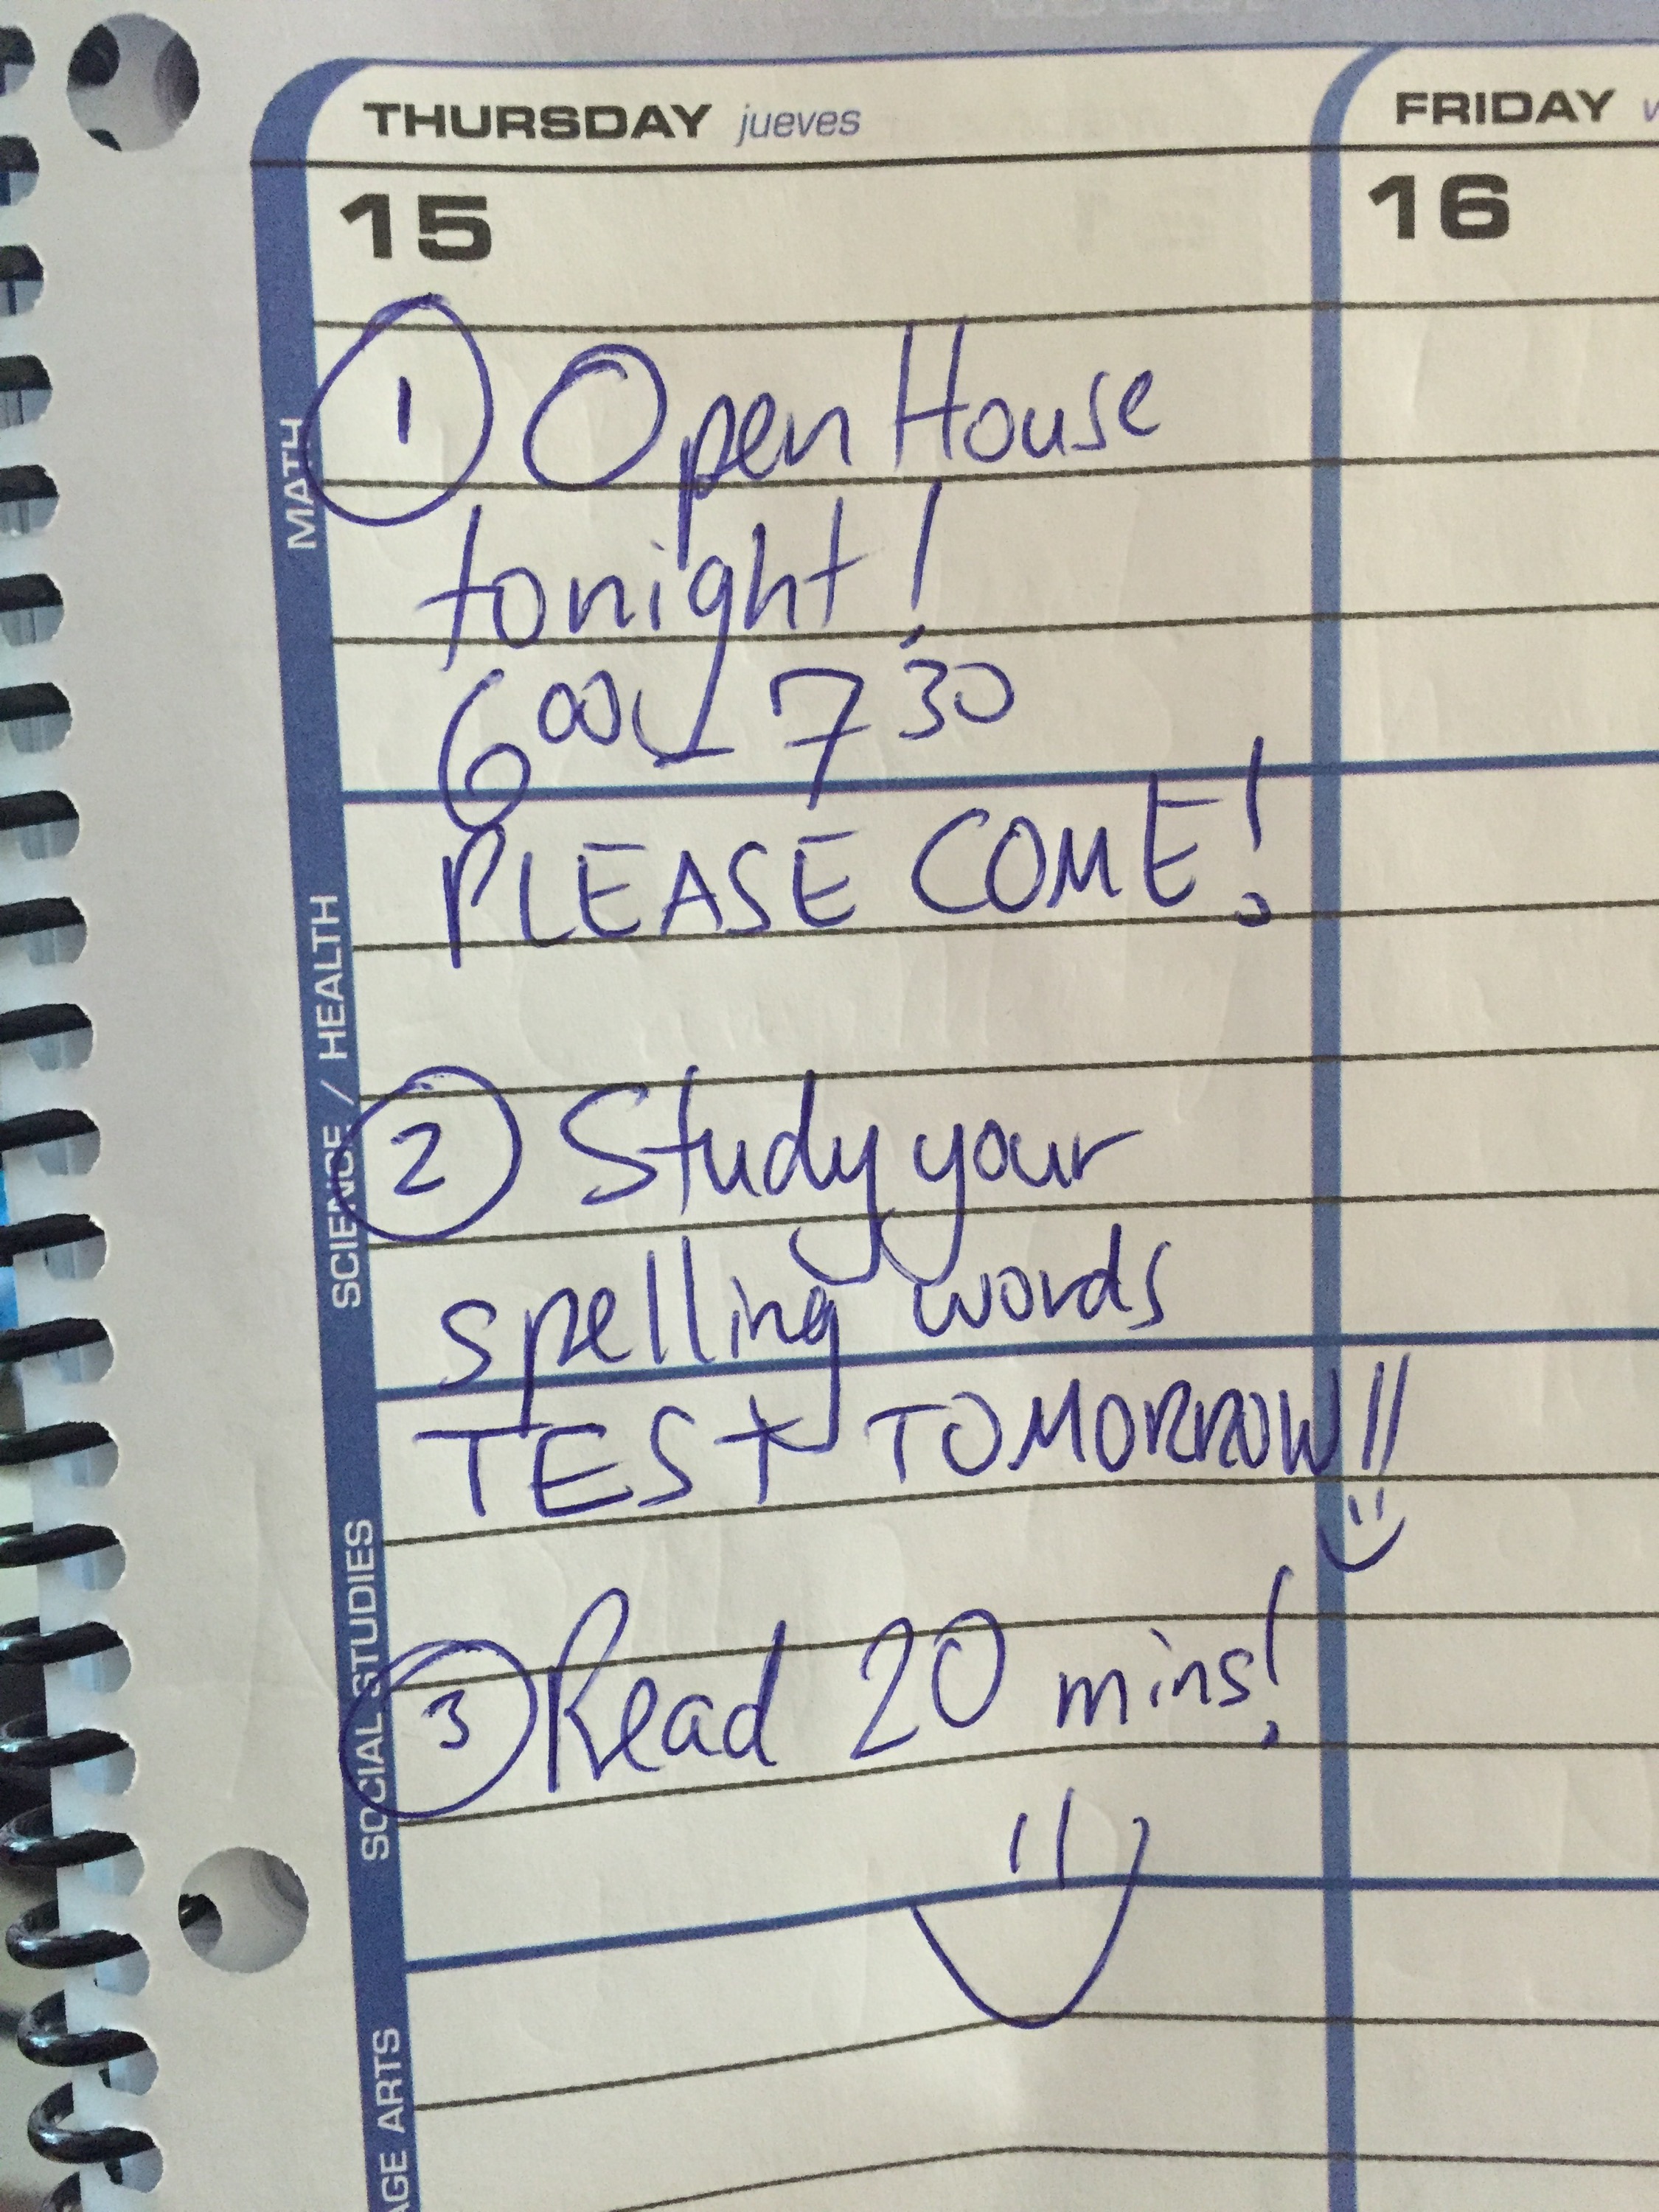 THURSDAY jueves
FRIDAY
15
16
① Open House
tonight!
6⁰⁰ - 7³⁰
PLEASE COME!
② Study your
spelling words
TEST TOMORROW!!
③ Read 20 mins!
MATH
SCIENCE / HEALTH
SOCIAL STUDIES
ARTS